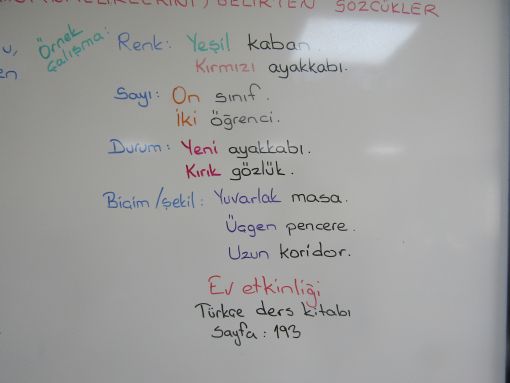 BELİRTEN SÖZCÜKLER
Örnek Çalışma:
Renk: Yeşil kaban.
Kırmızı ayakkabı.
Sayı: On sınıf.
İki öğrenci.
Durum: Yeni ayakkabı.
Kırık gözlük.
Biçim/şekil: Yuvarlak masa.
Üçgen pencere.
Uzun koridor.
Ev etkinliği
Türkçe ders kitabı
Sayfa: 193